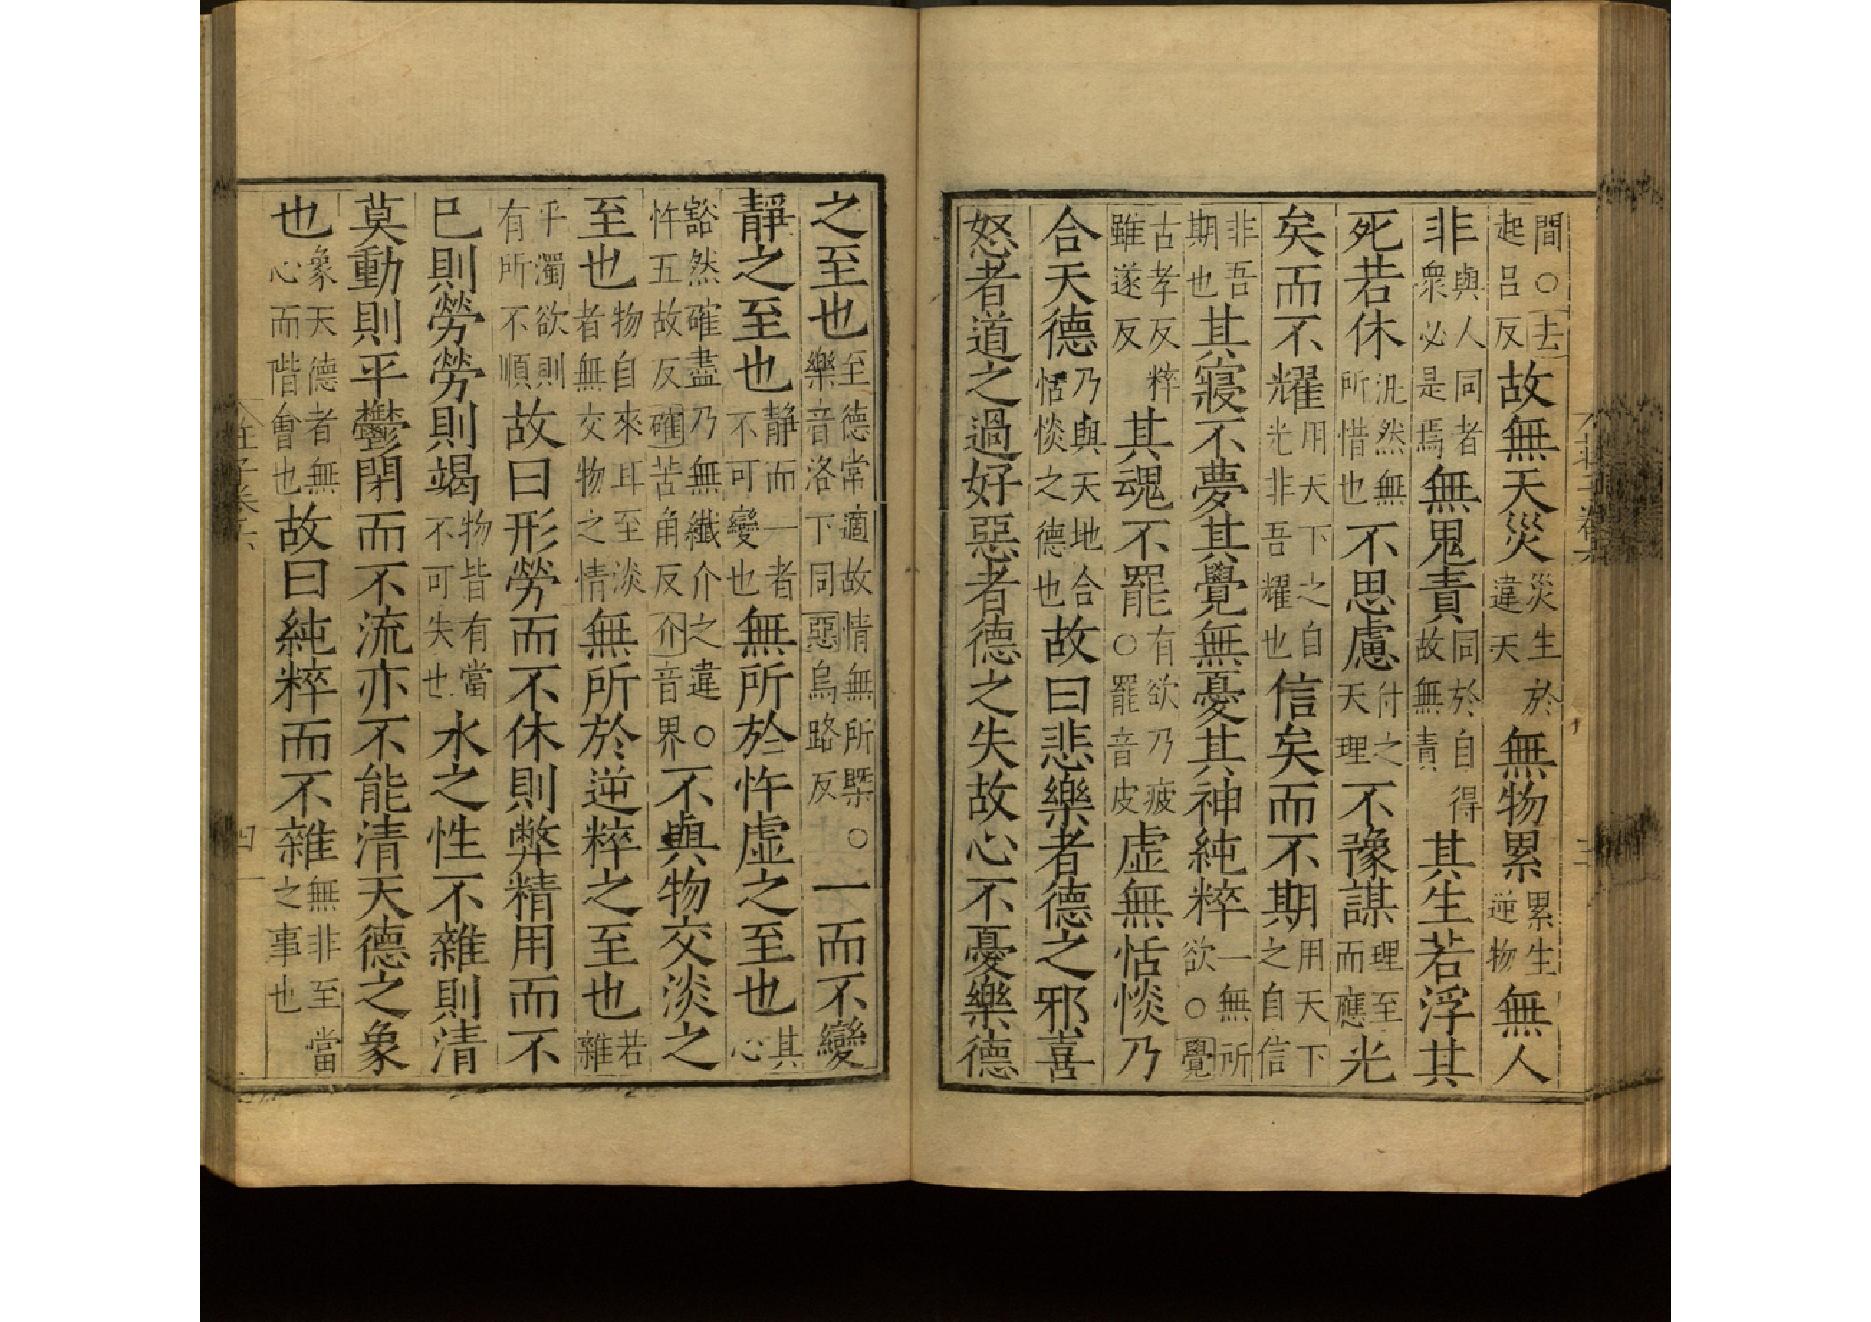 間○去起呂反故無天災災生於違天無物累累生逆物無人
非與人同者衆必是焉無鬼責同於自得故無責其生若浮其
死若休汎然無所惜也不思慮付之天理不豫謀理至而應光
矣而不耀用天下之自光非吾耀也信矣而不期用天下之自信
非吾期也其寢不夢其覺無憂其神純粹一無所欲○覺
古孝反粹雖遂反其魂不罷有欲乃疲○罷音皮虛無恬惔乃
合天德乃與天地合恬惔之德也故曰悲樂者德之邪喜
怒者道之過好惡者德之失故心不憂樂德
之至也至德常適故情無所槩○樂音洛下同惡烏路反一而不變
靜之至也靜而一者不可變也無所於忤虛之至也其心
豁然確盡乃無纖介之違○忤五故反確苦角反介音界不與物交淡之
至也物自來耳至淡者無交物之情無所於逆粹之至也若雜
乎濁欲則有所不順故曰形勞而不休則弊精用而不
已則勞勞則竭物皆有當不可失也水之性不雜則清
莫動則平鬱閉而不流亦不能清天德之象
也象天德者無心而偕會也故曰純粹而不雜無非至當之事也
四